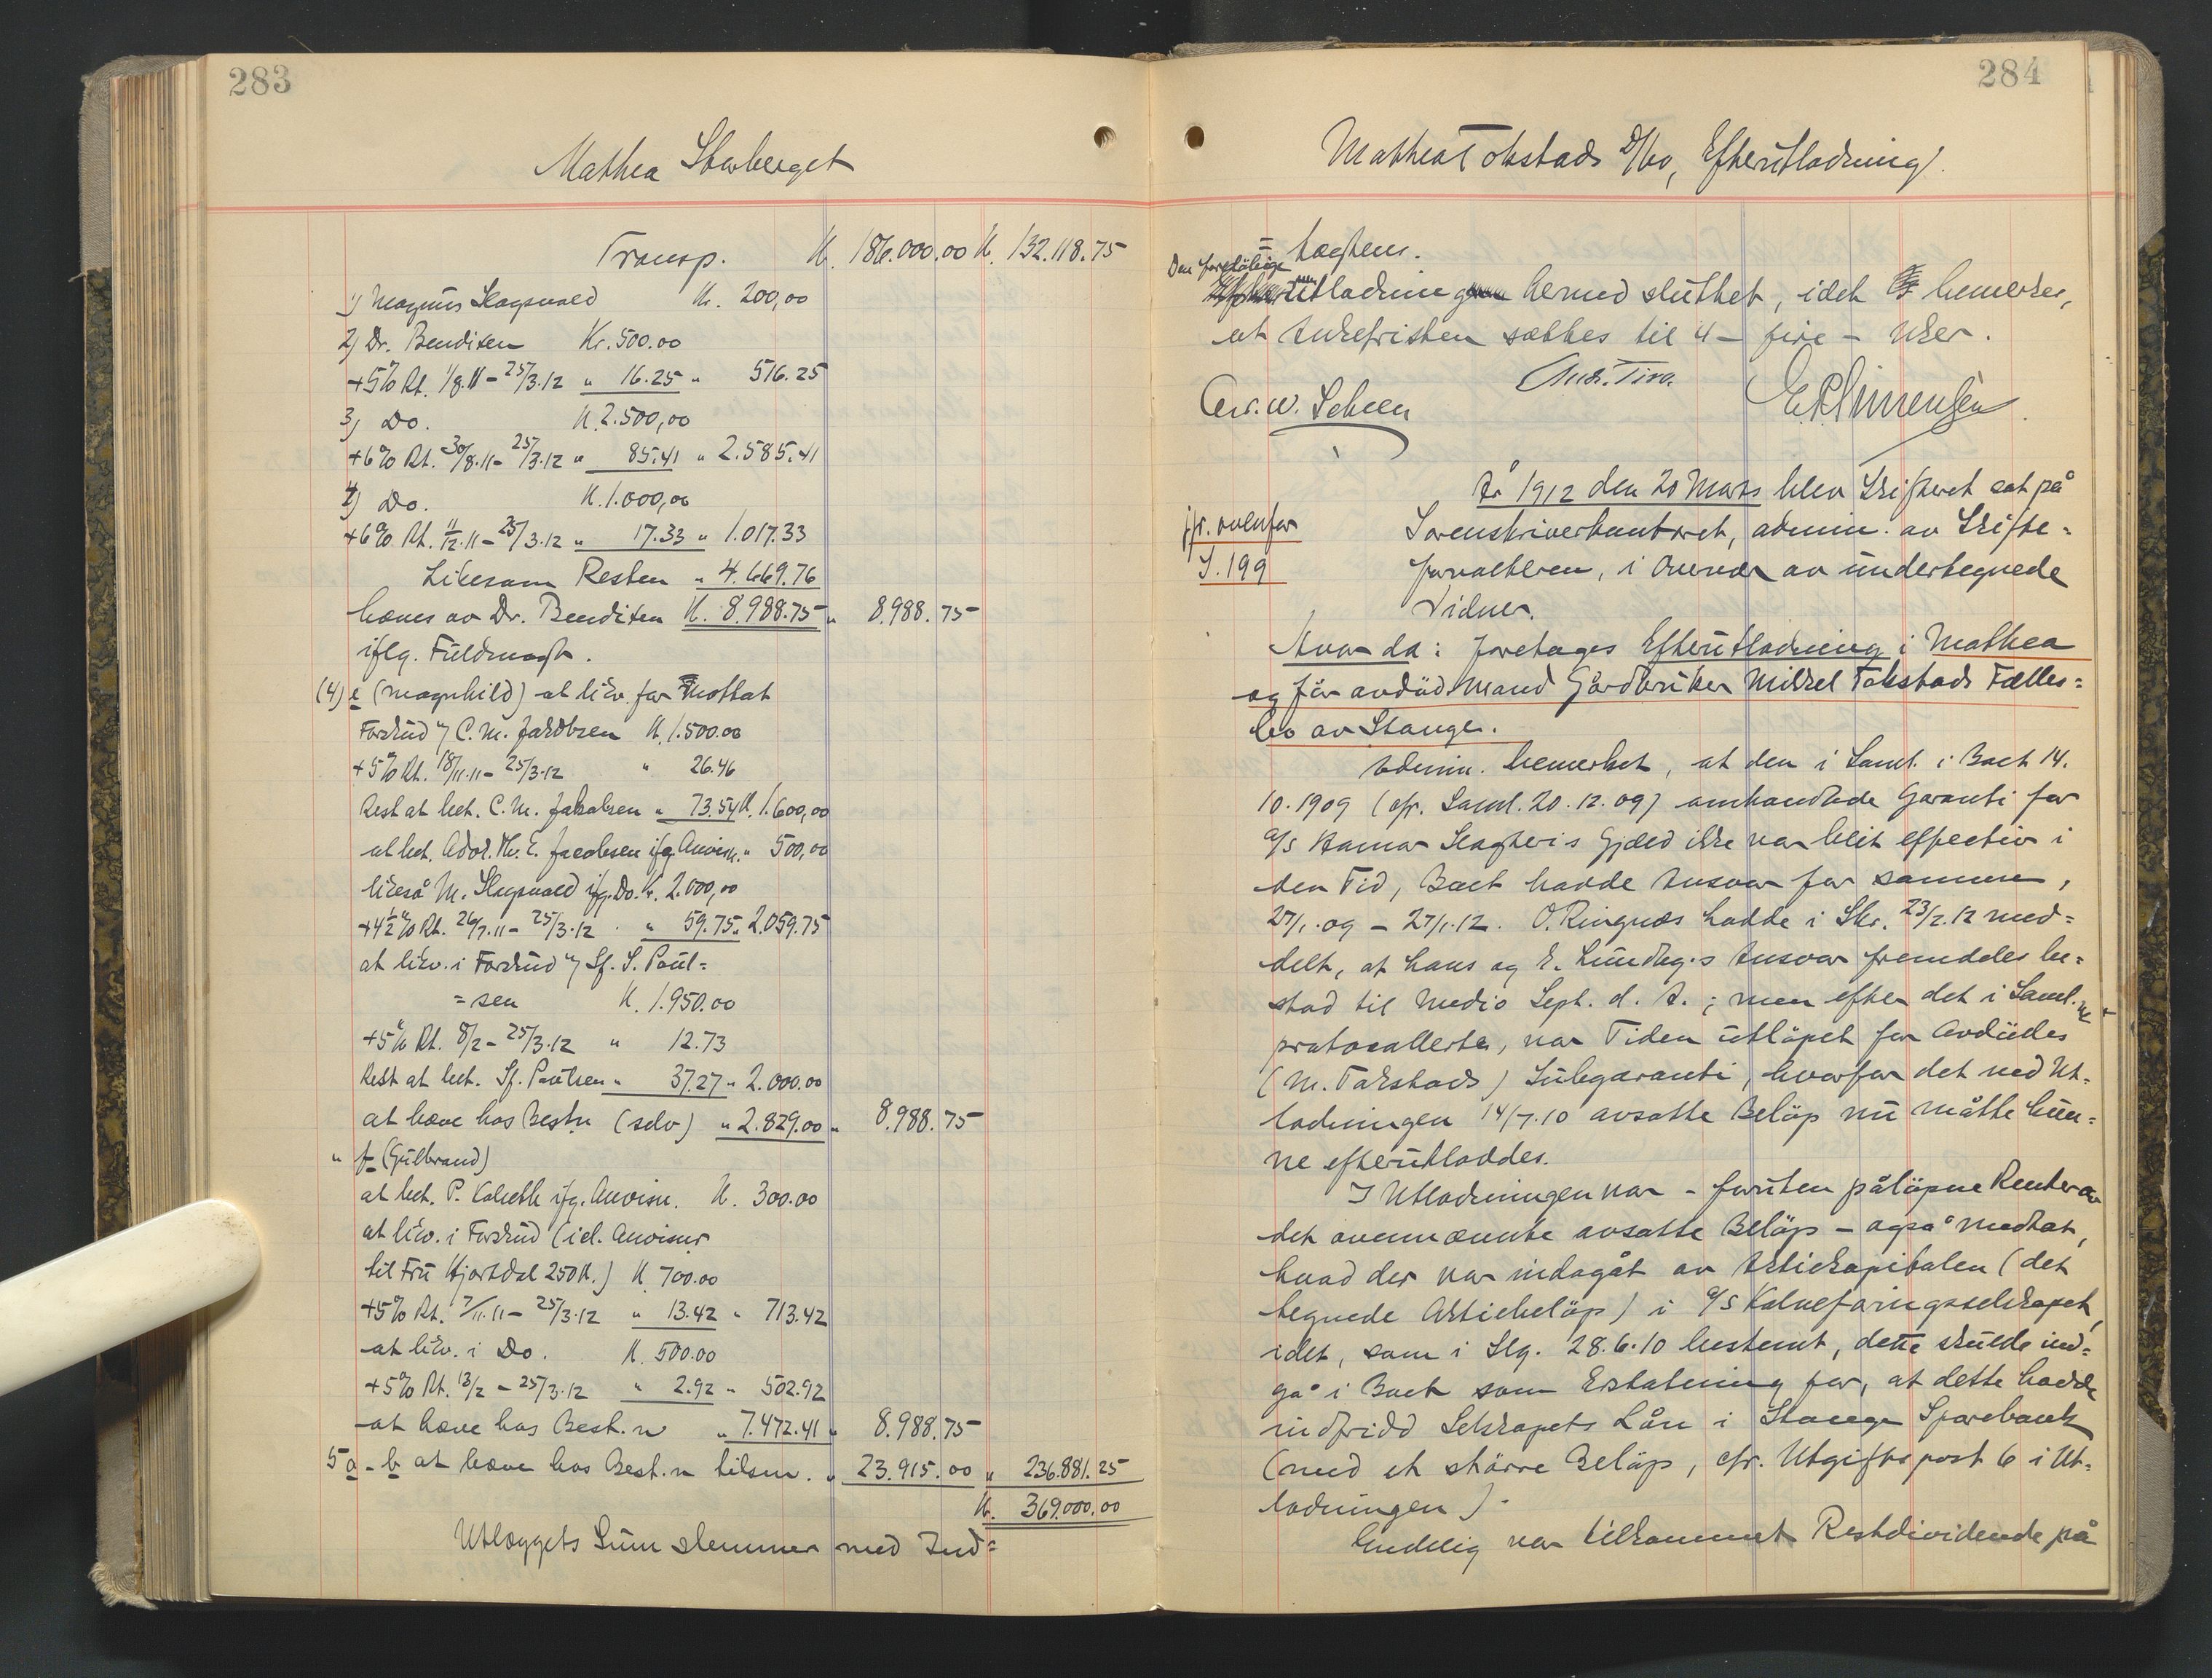 283
Mathea Storberget
Transp. K. 186.000.00 K. 132.118.75
1) Magnus Slagsvold Kr. 200,00
2) Dr. Bendixen Kr. 500.00
+5% Rt. 1/8.11 - 25/3.12 " 16.25 " 516.25
3) Do. K. 2.500,00
+6% Rt. 30/8.11 - 25/3.12 " 85.41 " 2.585.41
4) Do. K. 1.000,00
+6% Rt. 11/12.11 - 25/3.12 " 17.33 " 1.017.33
Likesom Resten " 4.669.76
hæves av Dr. Bendixen K. 8.988.75 " 8.988.75
iflg. Fuldmagt.
(4) e (Magnhild) at likv. for mottat
Forskud % C. M. Jakobsen K. 1.500.00
+5% Rt. 18/11.11 - 25/3.12 " 26.46
Rest at bet. C. M. Jakobsen " 73.54 K. 1.600,00
at bet. Adv. Th. E. Jacobsen ifg. Anvisn. " 500,00
likeså M. Slagsvold ifg. Do. Kr. 2.000,00
+4½% Rt. 26/7.11 - 25/3.12 . " 59.75 " 2.059.75
at likv. i Forskud % Sf. S. Poul=
=sen K. 1.950.00
+5% Rt. 8/2 - 25/3.12 " 12.73
Rest at bet. Sf. Poulsen " 37.27 " 2.000.00
at hæve hos Bestr. (selv) " 2.829.00 " 8.988.75
" f (Gulbrand)
at bet. P. Kolseth ifg. Anvisn. K. 300.00
at likv. i Forskud (icl. Anvisn.
til Fru Hjortdal 250 K.) K. 700.00
+5% Rt. 7/11.11 - 25/3.12 " 13.42 " 713.42
at likv. i Do. K. 500.00
+5% Rt. 13/2 - 25/3.12 " 2.92 " 502.92
at hæve hos Best.n " 7.472.41 " 8.988.75
5 a - b at hæve hos Best.n tilsm. " 23.915.00 " 236.881.25
K. 369.000.00
Utlæggets Sum stemmer med Ind=
284
Mathea Tokstads D/bo, Efterutlodning.
= tægtens.
Den foreløbige
utlodning hermed sluttet, idet bemerkes,
at Ankefristen sættes til 4 - fire - Uker.
And. Tira.
Chr. W. Scheen E. R. Simensen
År 1912 den 20 Mars blev Skifteret sat på
jfr. ovenfor Sorenskriverkontoret, admin. av Skifte=
S. 199 forvalteren, i Overvær av undertegnede
Vidner.
Hvor da: foretages Efterutlodning i Mathea
og før avdøde Mand Gårdbruker Mikkel Tokstads Fælles=
bo av Stange.
Admin. bemerket, at den i Saml. i Boet 14.
10.1909 (cfr. Saml. 20.12.09) omhandlede Garanti for
a/s Hamar Slagteri's Gjæld ikke var blit effectiv i
den Tid, Boet hadde Ansvar for samme,
27/1.09 - 27/1.12. O. Ringnæs hadde i Skr. 23/2.12 med=
delt, at hans og E. Lundbye's Ansvar fremdeles be=
stod til medio Sept. d. A.; men efter det i Saml.ne
protocallerte, var Tiden utløpet for Avdødes
(M. Tokstads) Subgaranti, hvorfor det ved Ut=
lodningen 14/7.10 avsatte Beløp nu måtte kun=
ne efterutloddes.
I Utlodningen var - foruten påløpne Renter av
det ovennævnte avsatte Beløp - også medtat,
hvad der var indgåt av Aktiekapitalen (det
tegnede Aktiebeløp) i a/s Kalvefôringsselskapet,
idet, som i Slg. 28.6.10 bestemt, dette skulde ind=
gå i Boet som Erstatning for, at dette hadde
indfridd Selskapets Lån i Stange Sparebank
(med et større Beløp, cfr. Utgiftspost 6 i Ut=
lodningen).
Endelig var tilkommet Restdividende på